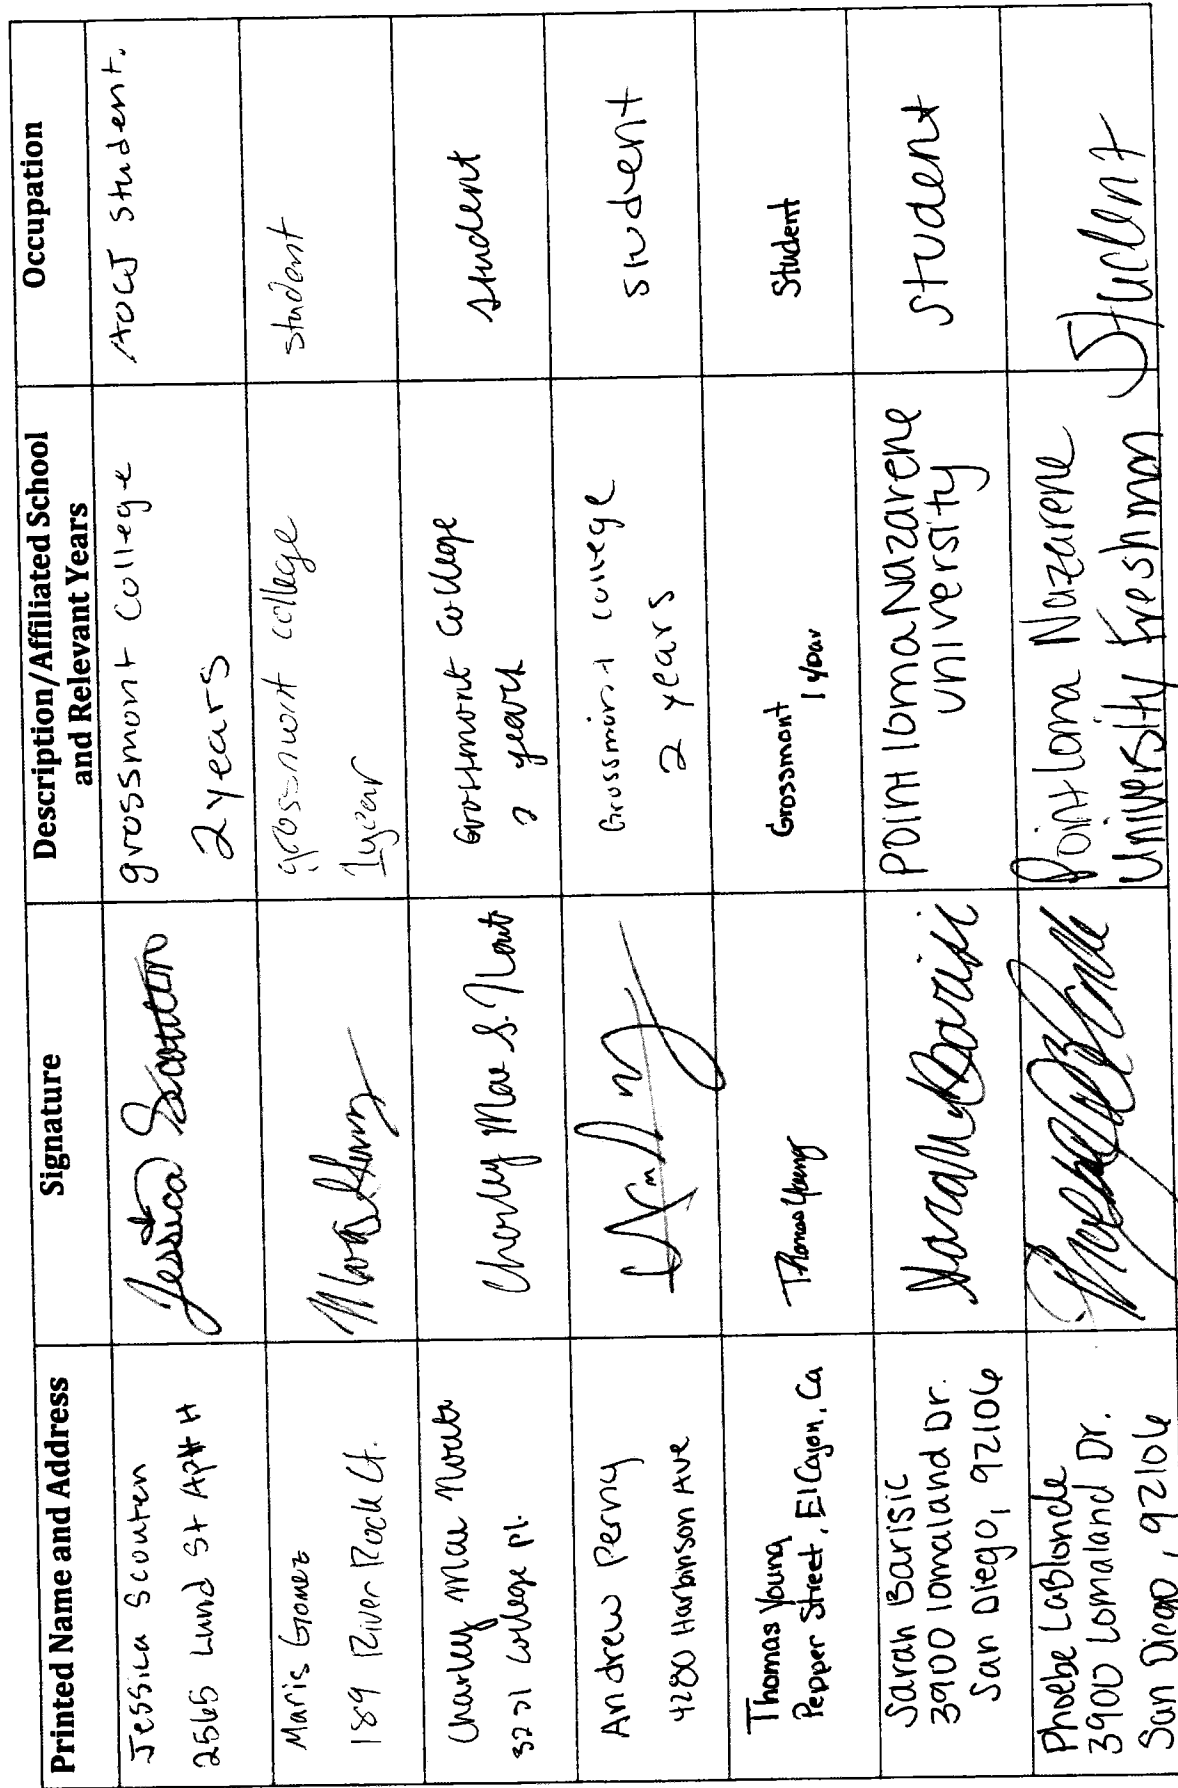 Printed Name and Address
Signature
Description/Affiliated School
and Relevant Years
Occupation
Jessica Scouten
2565 Lund St Apt# H
Jessica Scouten
grossmont College
2 years
AOCJ student.
Maris Gomez
189 River Rock Ct.
grossmont college
1 year
student
Charley Mae
College Pl.
Charley Mae S.
Grossmont College
2 years
student
Andrew Perry
4280 Harbinson Ave
Grossmont college
2 years
student
Thomas Young
Pepper Street, El Cajon, Ca
Thomas Young
Grossmont
1 year
Student
Sarah Barisic
3900 lomaland Dr.
San Diego, 92106
Sarah Barisic
Point loma Nazarene
university
student
Phoebe LaBlonde
3900 Lomaland Dr.
San Diego, 92106
Phoebe LaBlonde
Point Loma Nazarene
University Freshman
Student